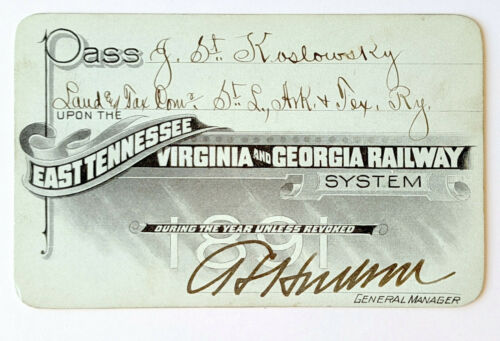 Pass J. St. Koslowsky
Land & Tax Comr. St. L., A.K. & Tex. Ry.
UPON THE
EAST TENNESSEE
VIRGINIA AND GEORGIA RAILWAY
SYSTEM
DURING THE YEAR UNLESS REVOKED
1891
GENERAL MANAGER